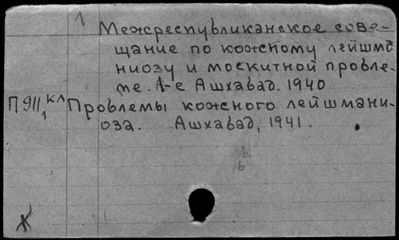 1
Межреспубликанское сове-
щание по кожному лейшма-
ниозу и москитной пробле-
ме. 1-е Ашхабад. 1940
П 911 кл Проблемы кожного лейшмани-
1
оза. Ашхабад, 1941.